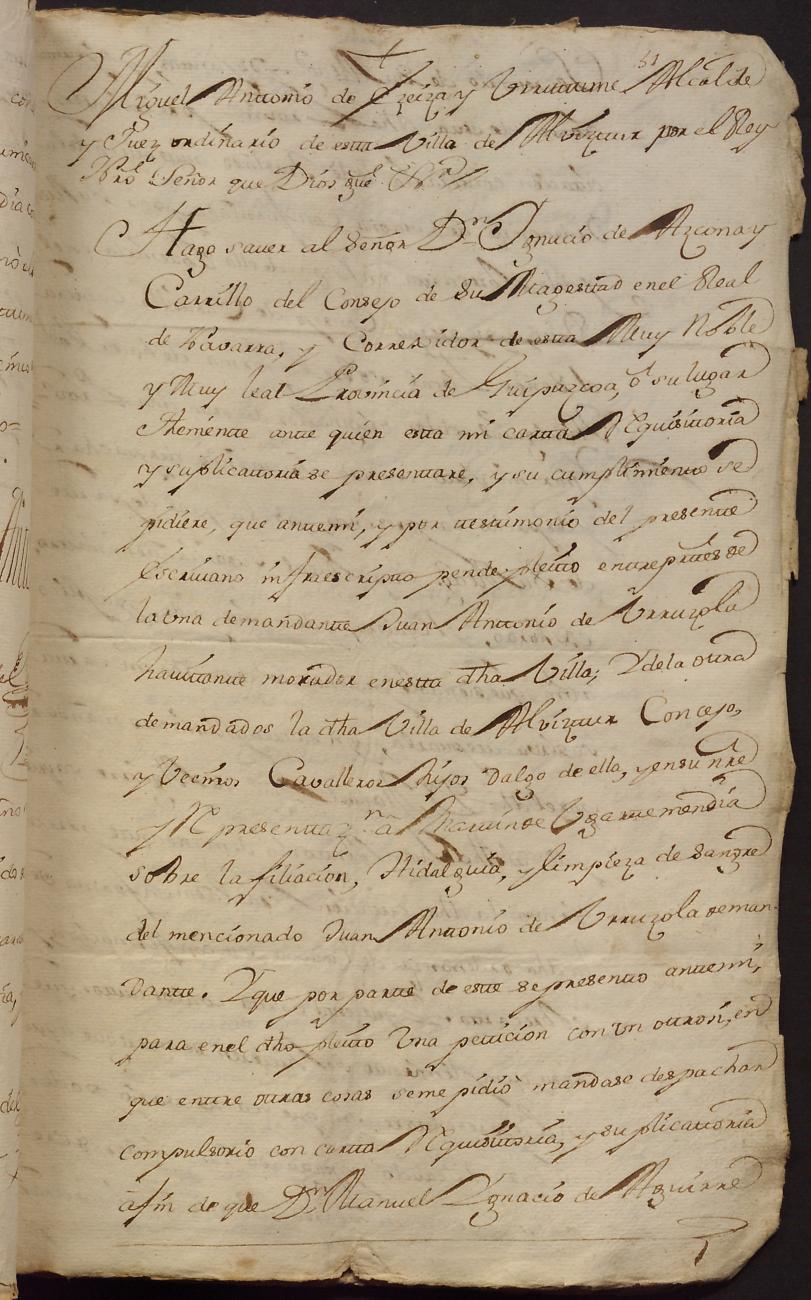 51
Miguel Anttonio de Ezeiza y Urruttume Alcalde
y Juez ordinario de estta Villa de Alvizttur por el Rey
Nrô Señor que Dios gûe &ra
Hago saver al Señor Dn Ignacio de Azcona y
Carrillo del Consejo de Su Magesttad en el Real
de Navarra, y Correxidor de estta Muy Noble
y Muy leal Provincia de Guipuzcoa, ô su lugar
theniente antte quien estta mi cartta Requisittoria
y suplicattoria se presenttare, y su cumplimientto se
pidiere, que antte mi, y por ttesttimonio del presentte
Escrivano infraescriptto pende pleitto entre parttes de
la una demandantte Juan Anttonio de Urruzola
havittantte morador en estta dha Villa; Y de la ottra
demandados la dha Villa de Alvizttur Concejo,
y Vecinos Cavalleros hijos dalgo de ella, y en su nre
y Representtazn a Marttin de Ugarttemendia
sobre la filiacion, Hidalguia, y limpieza de Sangre
del mencionado Juan Anttonio de Urruzola deman-
dantte. Y que por partte de estte se presentto antte mi,
para en el dho pleitto una petticion con un ottrosi, en
que enttre ottras cosas se me pidiò mandase despachar
compulsorio con cartta Requisittoria, y suplicattoria
a fin de que Dn Manuel Ignacio de Aguirre